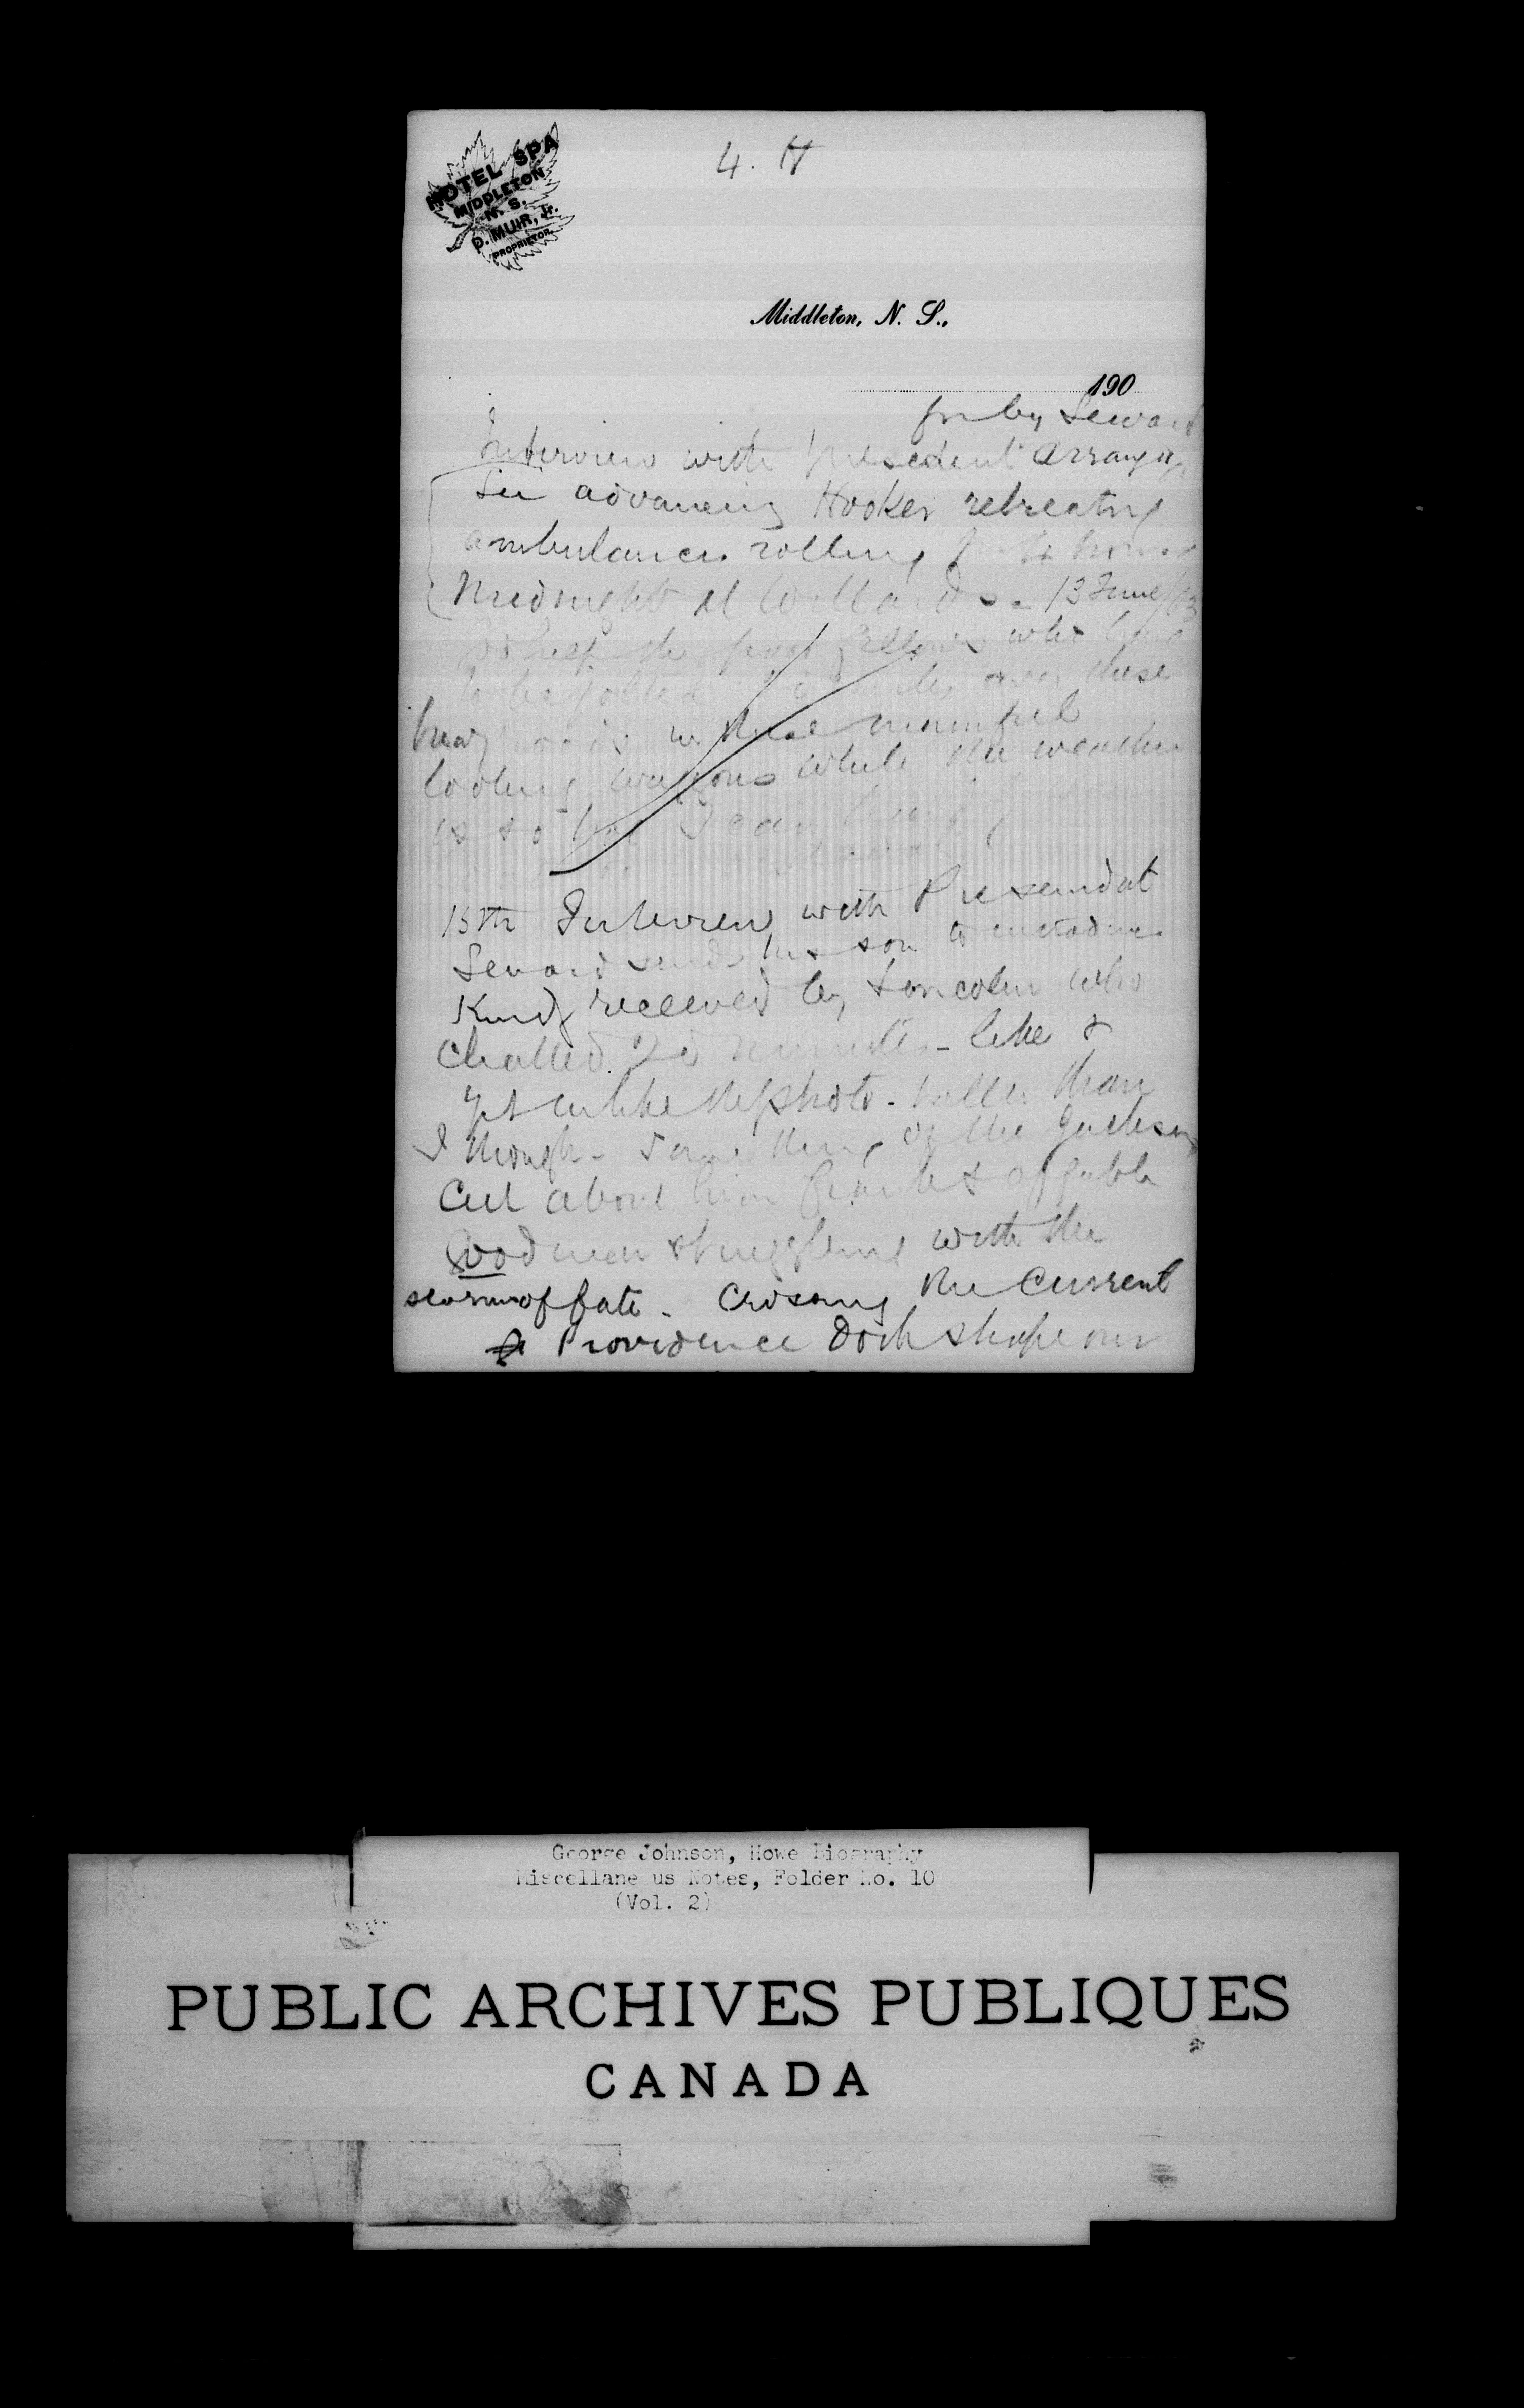 HOTEL SPA
MIDDLETON
N. S.
P. MUIR, Jr.
PROPRIETOR.
4. H
Middleton, N. S.,
190
for by Seward
Interview with president
advancing Hooker retreating
ambulances rolling
Midnight at Willards - 13 June/63
God help the poor fellows who have
to be jolted miles over these
roads in these mournful
looking waggons while the weather
is so hot I can hardly wear
Coat or waistcoat
15th Interview with
Seward sends his son to introduce
received by Lincoln who
chatted 20 minutes - like &
yet unlike the photo - taller than
I though - some thing of the Jackson
cut about him frank & affable
Good men struggling with the
storm of fate. Crossing the Current
Providence doth shape our
George Johnson, Howe Biography
Miscellane us Notes, Folder No. 10
(Vol. 2)
PUBLIC ARCHIVES PUBLIQUES
CANADA